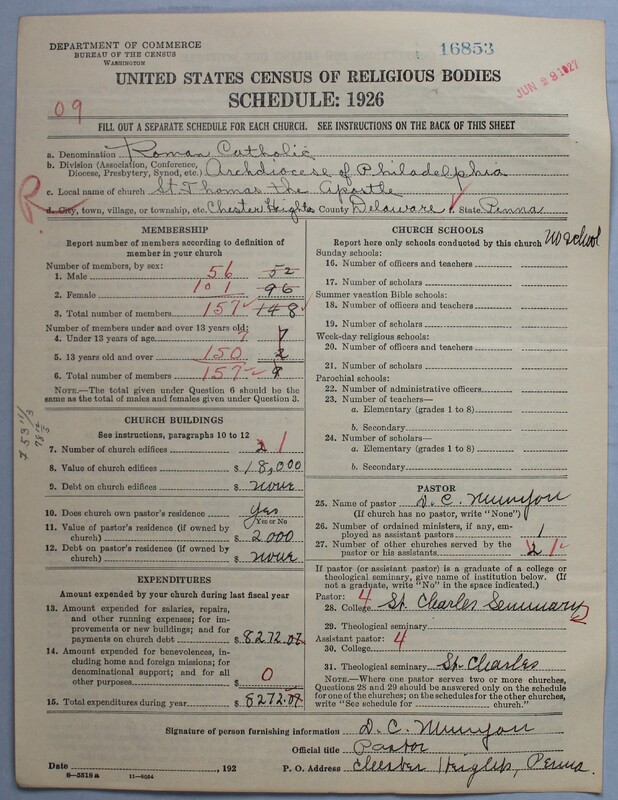 DEPARTMENT OF COMMERCE
BUREAU OF THE CENSUS
WASHINGTON
16853
JUN 28 1927
UNITED STATES CENSUS OF RELIGIOUS BODIES
SCHEDULE: 1926
09
FILL OUT A SEPARATE SCHEDULE FOR EACH CHURCH. SEE INSTRUCTIONS ON THE BACK OF THIS SHEET
a. Denomination Roman Catholic
b. Division (Association, Conference, Diocese, Presbytery, Synod, etc.) Archdiocese of Philadelphia
c. Local name of church St. Thomas the Apostle
R
d. City, town, village, or township, etc. Chester Heights County Delaware State Penna
MEMBERSHIP
Report number of members according to definition of
member in your church
Number of members, by sex:
1. Male 56 52
2. Female 101 96
3. Total number of members 157 148
Number of members under and over 13 years old:
4. Under 13 years of age 7 7
5. 13 years old and over 150 2
6. Total number of members 157 9
NOTE.—The total given under Question 6 should be
the same as the total of males and females given under Question 3.
CHURCH BUILDINGS
See instructions, paragraphs 10 to 12
7. Number of church edifices 2 1
8. Value of church edifices $ 18,000
9. Debt on church edifices $ none
10. Does church own pastor's residence yes
Yes or No
11. Value of pastor's residence (if owned by
church) $ 2000
12. Debt on pastor's residence (if owned by
church) $ none
EXPENDITURES
Amount expended by your church during last fiscal year
13. Amount expended for salaries, repairs,
and other running expenses; for im-
provements or new buildings; and for
payments on church debt $ 8272.07
14. Amount expended for benevolences,
including home and foreign missions; for
denominational support; and for all
other purposes $ 0
15. Total expenditures during year $ 8272.07
CHURCH SCHOOLS
Report here only schools conducted by this church no school
Sunday schools:
16. Number of officers and teachers
17. Number of scholars
Summer vacation Bible schools:
18. Number of officers and teachers
19. Number of scholars
Week-day religious schools:
20. Number of officers and teachers
21. Number of scholars
Parochial schools:
22. Number of administrative officers
23. Number of teachers—
a. Elementary (grades 1 to 8)
b. Secondary
24. Number of scholars—
a. Elementary (grades 1 to 8)
b. Secondary
PASTOR
25. Name of pastor D. C. Munyon
(If church has no pastor, write "None")
26. Number of ordained ministers, if any, em-
ployed as assistant pastors 1
27. Number of other churches served by the
pastor or his assistants 2 1
If pastor (or assistant pastor) is a graduate of a college or
theological seminary, give name of institution below. (If
not a graduate, write "No" in the space indicated.)
Pastor: 4
28. College St. Charles Seminary
29. Theological seminary
Assistant pastor: 4
30. College
31. Theological seminary St. Charles
NOTE.—Where one pastor serves two or more churches,
Questions 28 and 29 should be answered only on the schedule
for one of the churches; on the schedules for the other churches,
write "See schedule for church."
Signature of person furnishing information D. C. Munyon
Official title Pastor
Date , 192 P. O. Address Chester Heights, Penna.
8-5518a 11-8064